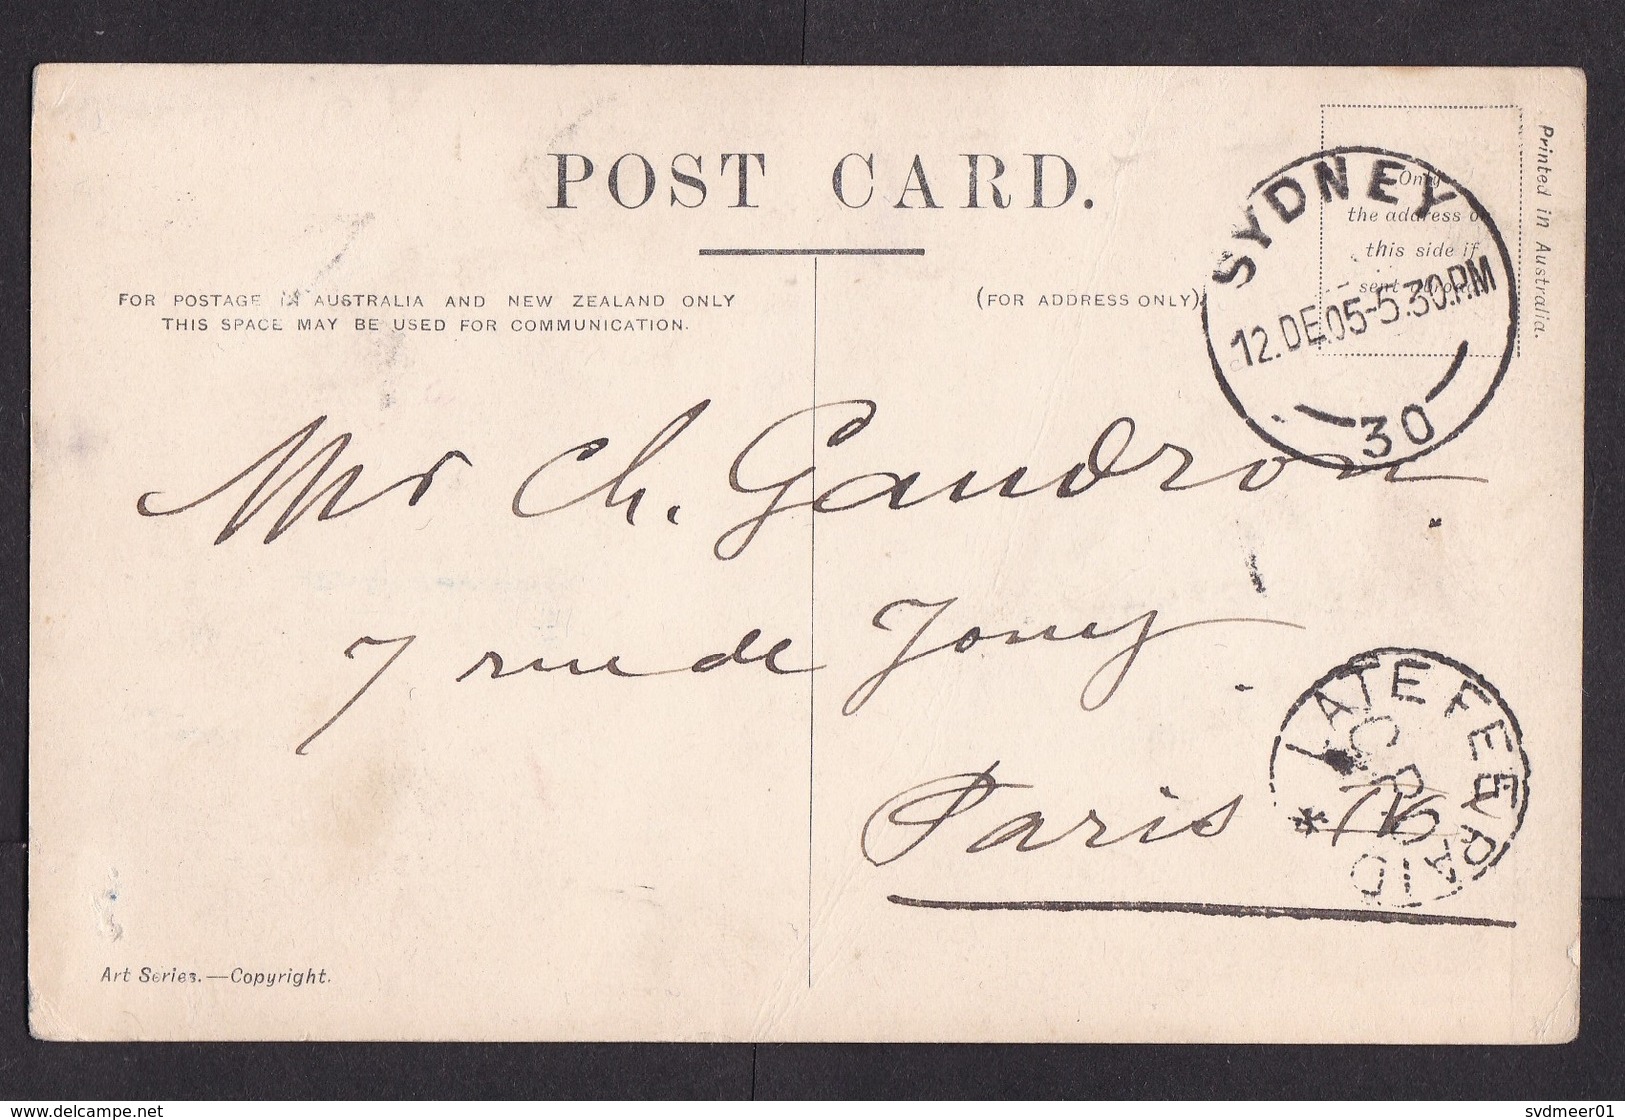 POST CARD.
Printed in Australia.
Only
the address on
this side if
sent abroad
SYDNEY
12.DE.05-5.30.P.M
30
FOR POSTAGE IN AUSTRALIA AND NEW ZEALAND ONLY
THIS SPACE MAY BE USED FOR COMMUNICATION.
(FOR ADDRESS ONLY)
Mr Ch. Gaudron
7 rue de
Paris
LATE FEE PAID
Art Series.—Copyright.
www.delcampe.net
svdmeer01